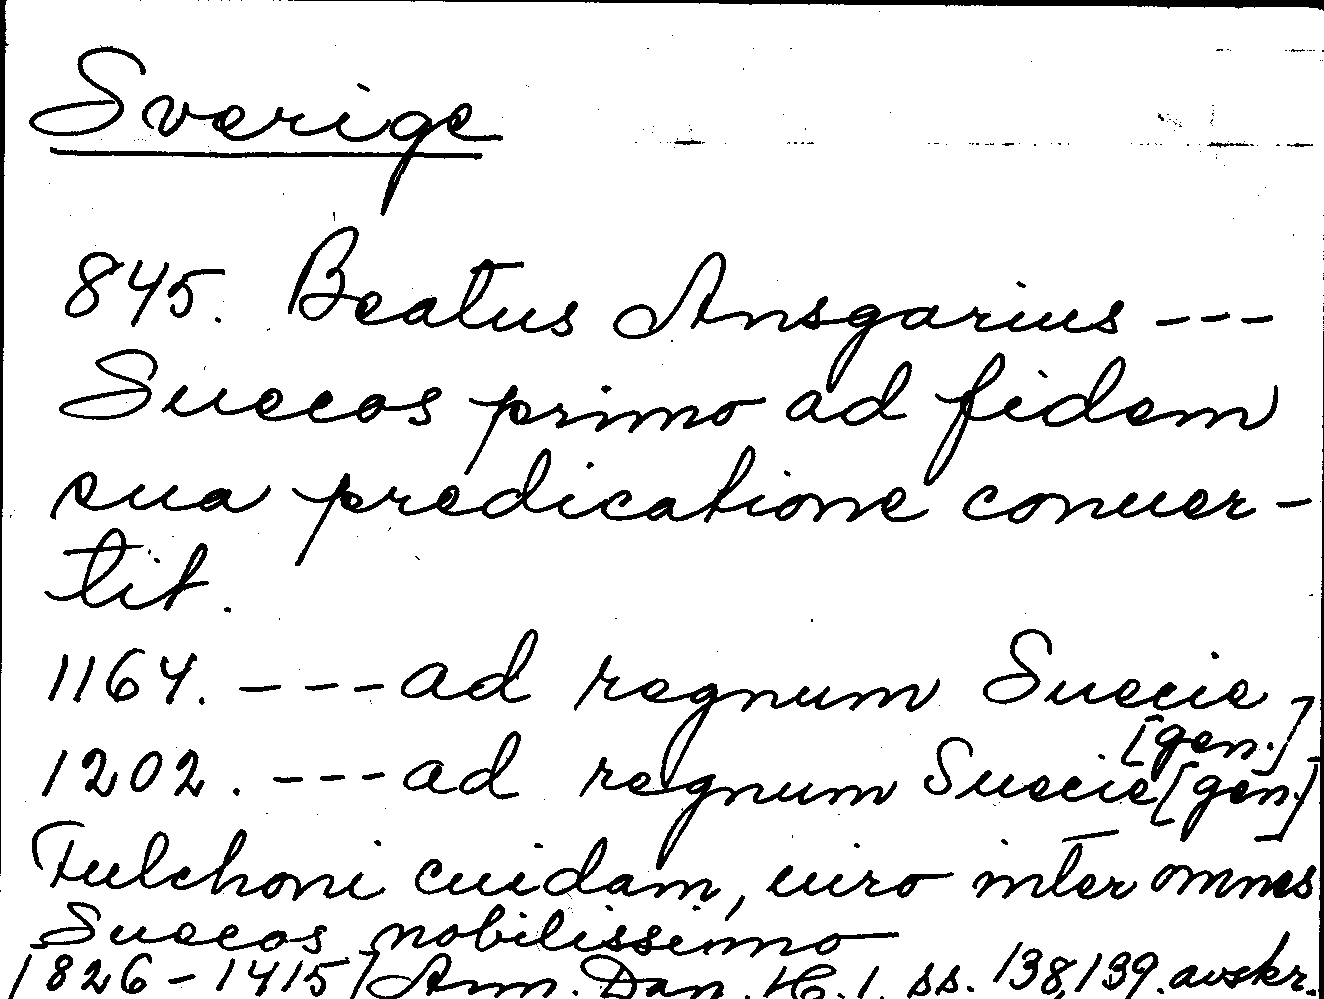 Sverige
845. Beatus Ansgarius ---
Suecos primo ad fidem
sua predicatione conuer-
tit.
1164. --- ad regnum Suecie
[gen.]
1202. --- ad regnum Suecie [gen.]
Fulchoni cuidam, uiro inter omnes
Suecos nobilissimo
[826-1415] Ann. Dan. H. 1. ss. 138, 139. avskr.